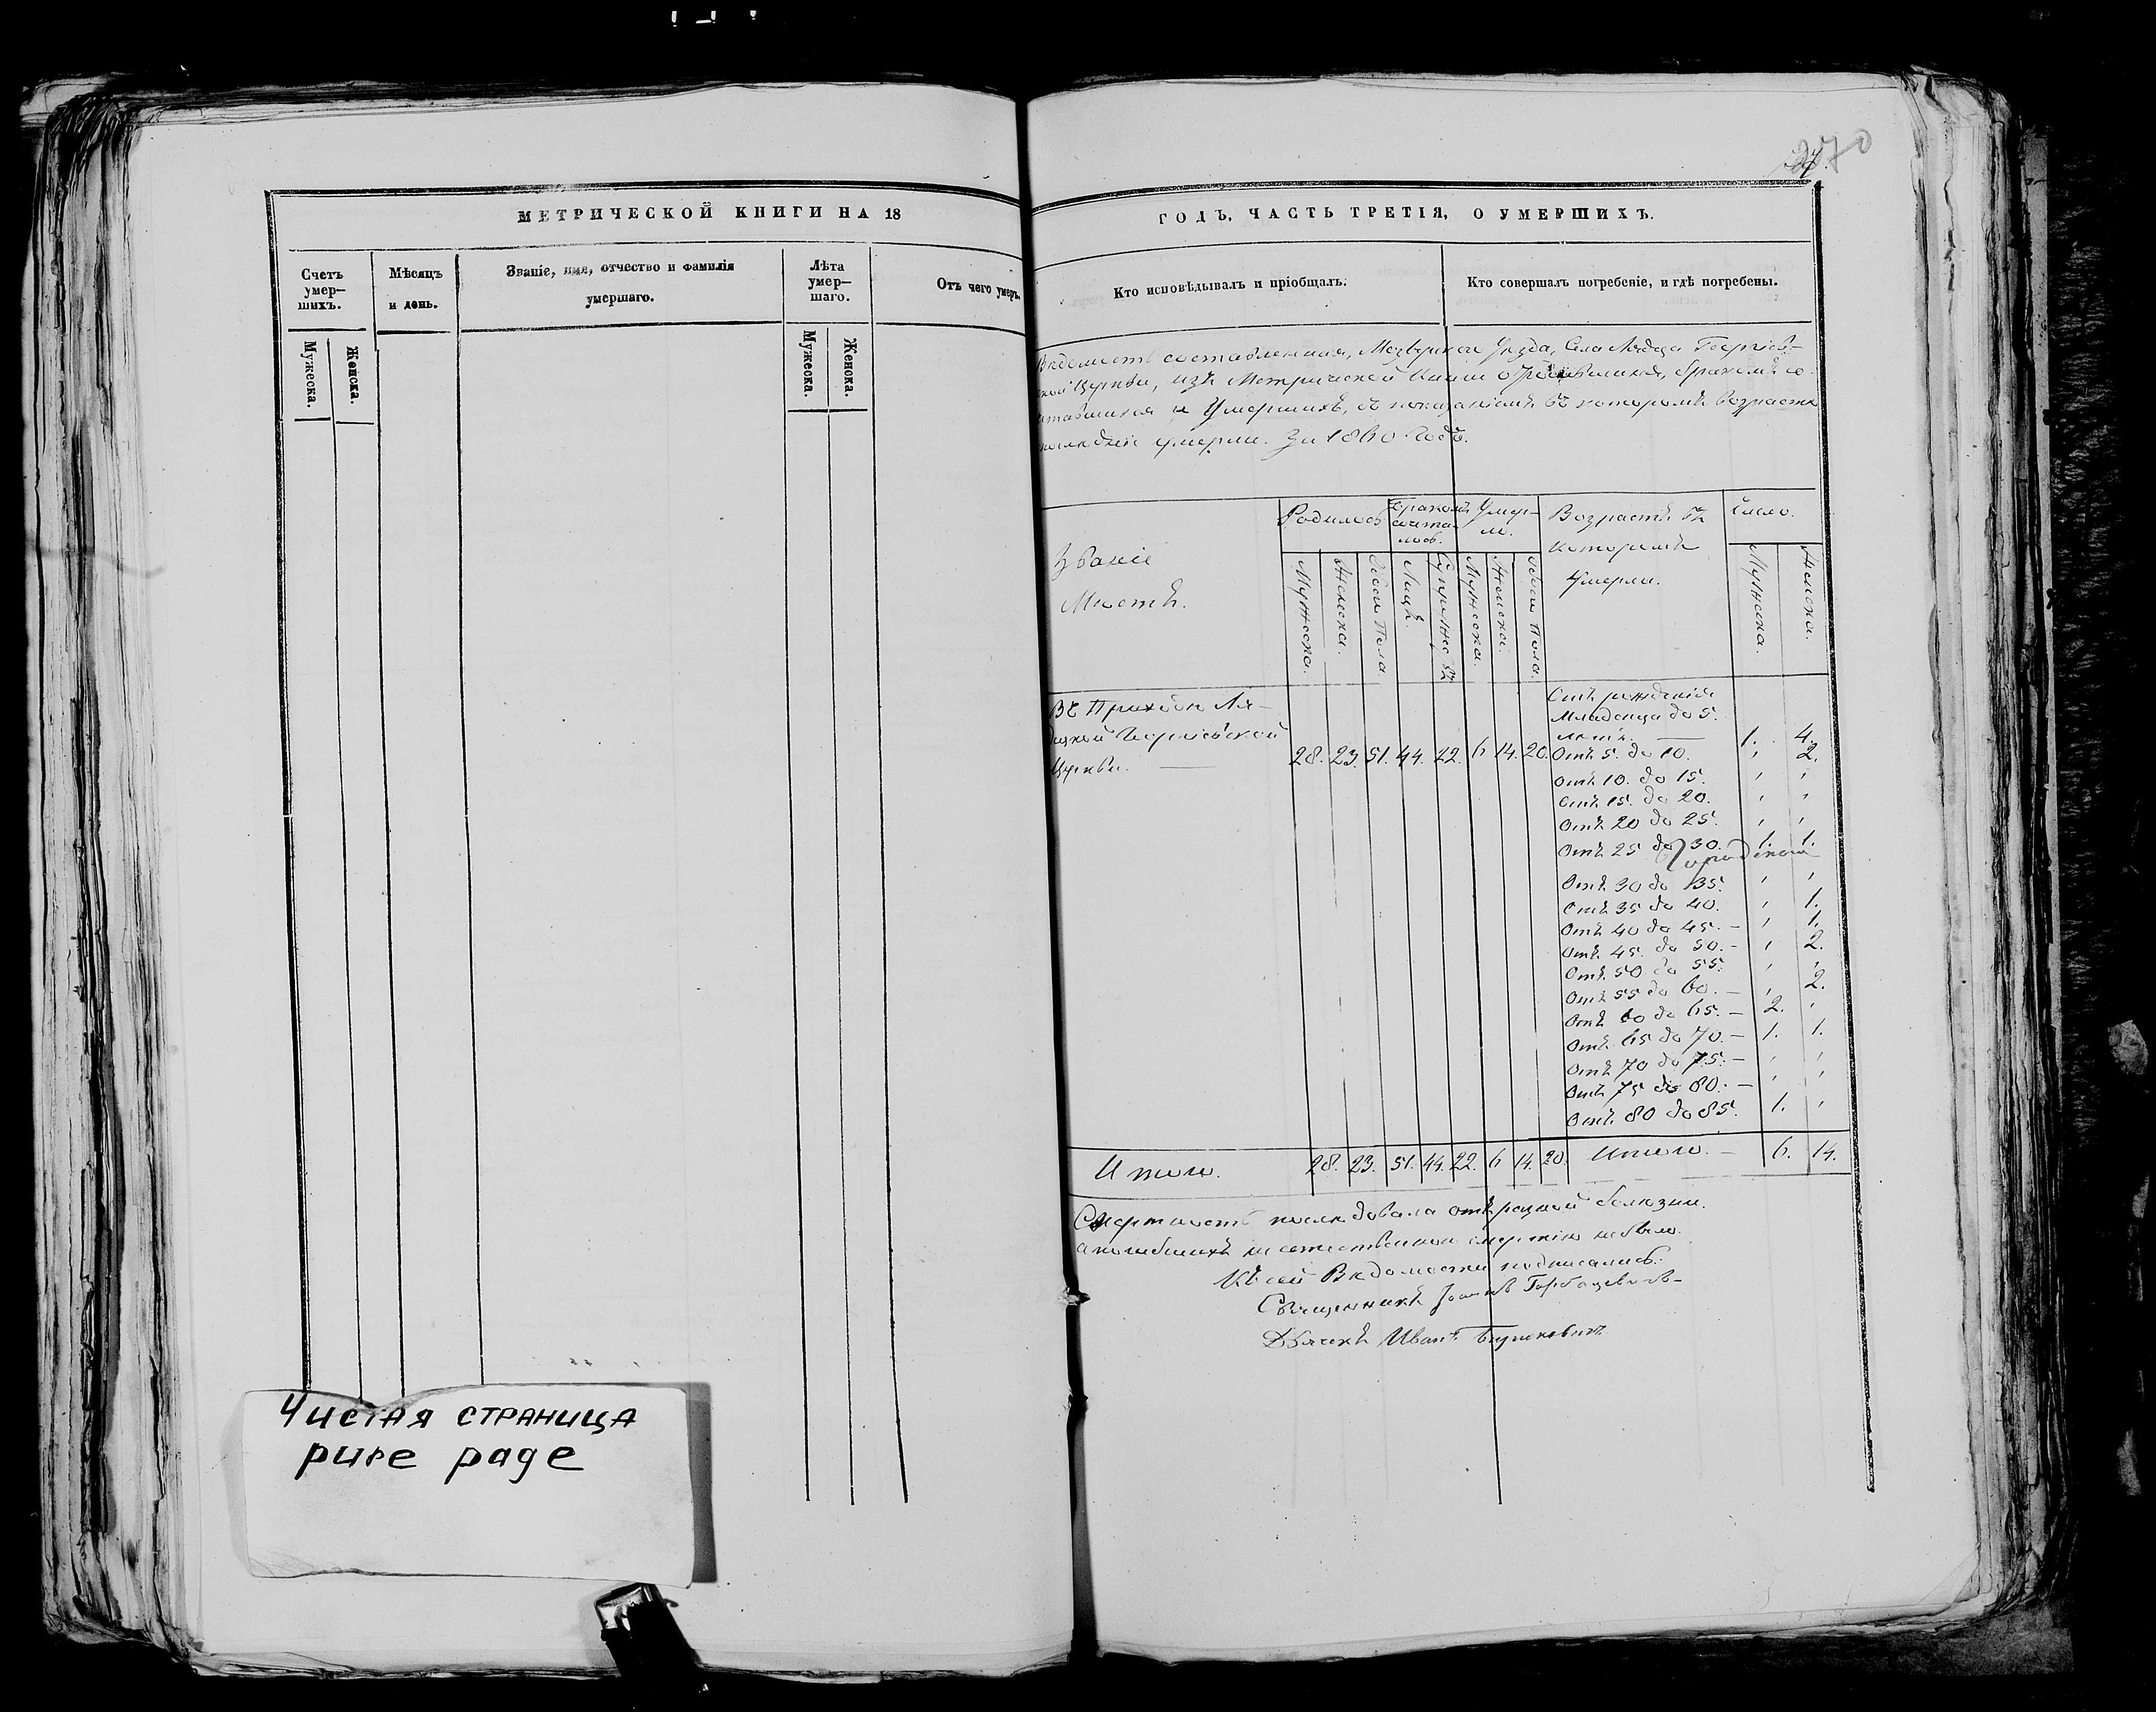 270
МЕТРИЧЕСКОЙ КНИГИ НА 18
Счетъ умер— шихъ.
Мужеска.
Женска.
Мѣсяцъ и день.
Званіе, имя, отчество и фамилія умершаго.
Лѣта умер— шаго.
Мужеска.
Женска.
Отъ чего умеръ.
Чистая страница
pure page
ГОДЪ, ЧАСТЬ ТРЕТІЯ, О УМЕРШИХЪ.
Кто исповѣдывалъ и пріобщалъ.
Кто совершалъ погребеніе, и гдѣ погребены.
Вѣдомость составленная, Мозырскаго Уѣзда, Села Лядца Георгіев—
ской Церкви, изъ Метрической Книги о родившихся, бракомъ со—
четавшихся и Умершихъ, съ показаніемъ въ которомъ возрастѣ
послѣдніе умерли. За 1860 годъ.
Званіе
Мѣстъ.
Родилось
Мужеска.
Женска.
Обоего Пола
Бракомъ сочета— лось.
Лицъ.
Супружествъ
Умер— ло.
Мужеска.
Женска.
Обоего Пола.
Возрастъ въ
которомъ
Умерли.
Число.
Мужеска.
Женска.
Въ Приходѣ Ля—
децкой Георгіевской
Церкви. — 28. 23. 51. 44. 22. 6 14. 20.
Отъ рожденія
Младенца до 5.
лѣтъ. — 1. 4.
Отъ 5. до 10. , 2.
Отъ 10. до 15. , ,
Отъ 15. до 20. , ,
Отъ 20 до 25. , ,
Отъ 25 до 30. 1. 1.
Отъ 30 до 35. , ,
Отъ 35 до 40. , 1.
Отъ 40 до 45. — , 1.
Отъ 45. до 50. — , 2.
Отъ 50 до 55. , ,
Отъ 55 до 60. — , 2.
Отъ 60 до 65. — 2. ,
Отъ 65 до 70. — 1. 1.
Отъ 70 до 75. — , ,
Отъ 75 до 80. — , ,
Отъ 80 до 85. 1. ,
Итого. 28. 23. 51. 44. 22. 6 14. 20. Итого. — 6. 14.
Смертность послѣдовала отъ разной болѣзни.
а погибшихъ неестественною смертію небыло.
Къ сей Вѣдомости подписались:
Священникъ Іоаннъ Горбацевичъ—
Дьячекъ Иванъ